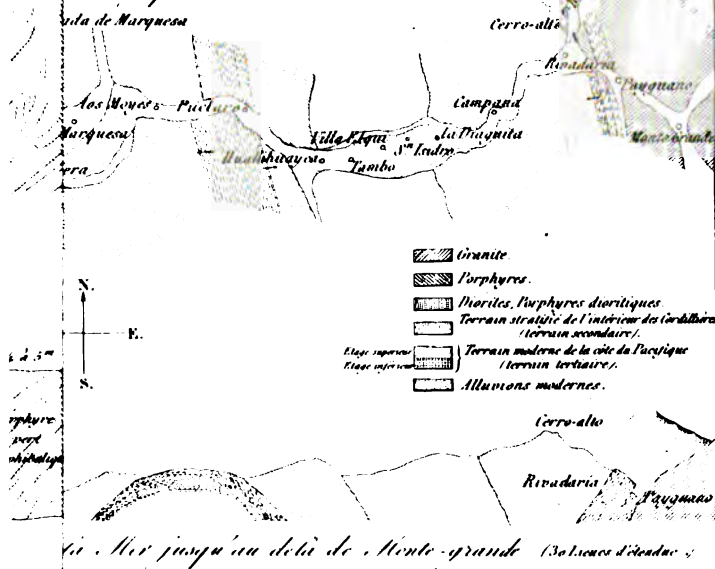 ada de Marquesa
Cerro-alto
Rivadaria
Payguano
Campana
los Moyes
Puclaros
Marquesa
Villa Elqui
la Diaguita
Monte grande
Sn Isidro
era
Hualihuayca
Tambo
Granite.
Porphyres.
N.
Diorites, Porphyres dioritiques.
Terrain stratifié de l'intérieur des Cordillières
(terrain secondaire).
E.
Etage supérieur
Terrain moderne de la côte du Pacifique
Etage inférieur
(terrain tertiaire).
à 5m
S.
Alluvions modernes.
rphyre
vert
Cerro-alto
Rivadaria
Payguano
la Mer jusqu'au delà de Monte-grande (30 lieues d'étendue.)